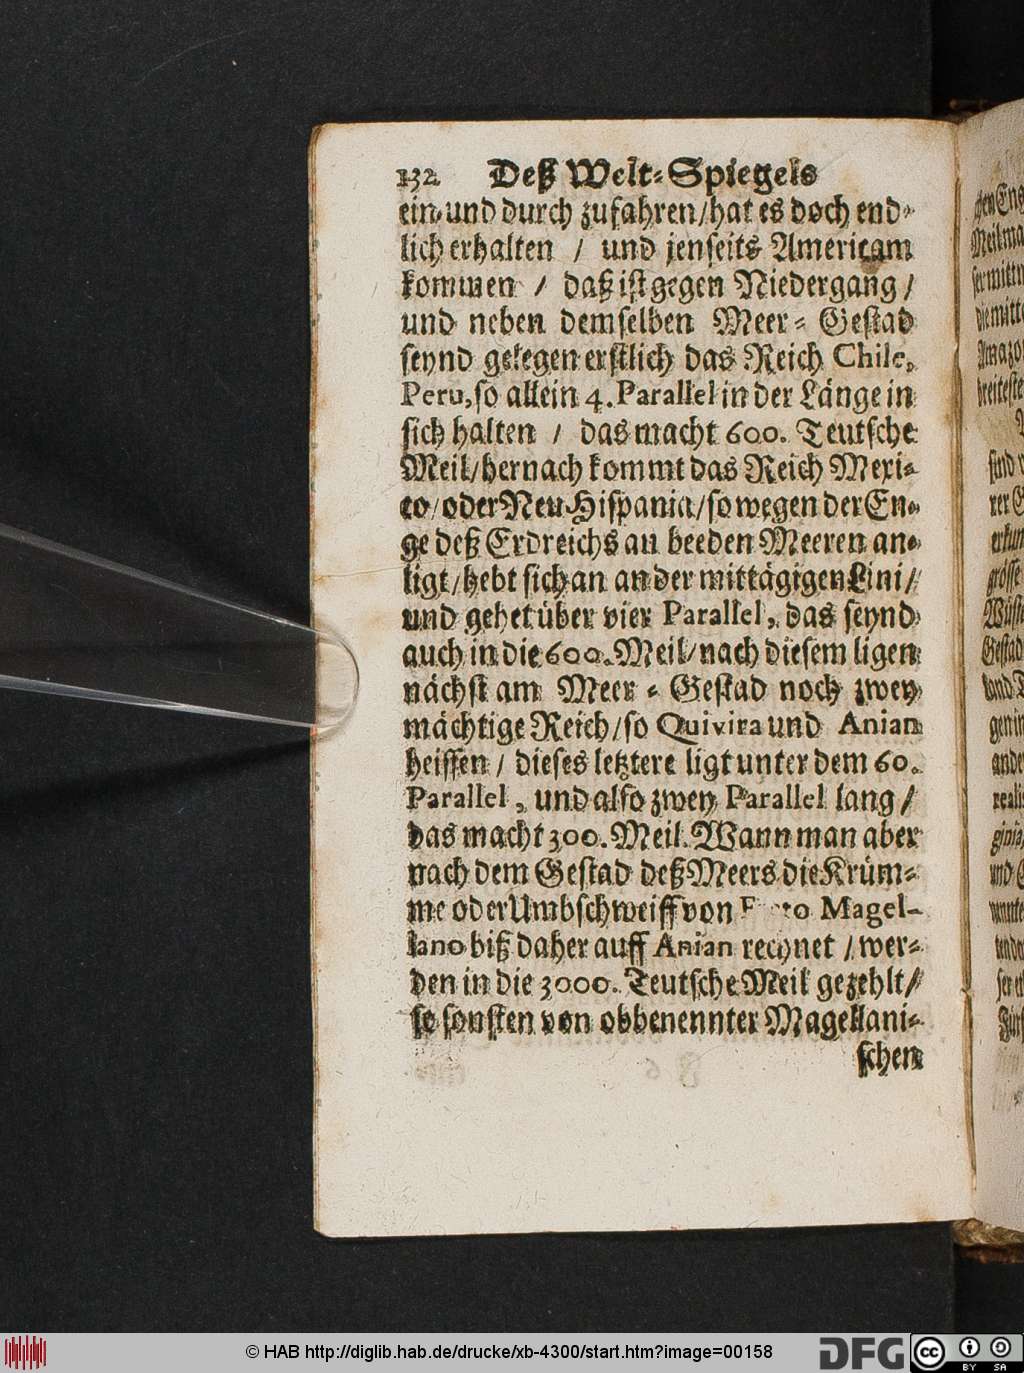 132 Deß Welt-Spiegels
ein- und durch zufahren/hat es doch end-
lich erhalten / und jenseits Americam
kommen / daß ist gegen Niedergang /
und neben demselben Meer- Gestad
seynd gelegen erstlich das Reich Chile,
Peru, so allein 4. Parallel in der Länge in
sich halten / das macht 600. Teutsche
Meil/hernach kommt das Reich Mexi-
co/oder Neu-Hispania/so wegen der En-
ge deß Erdreichs an beeden Meeren an-
ligt/hebt sich an an der mittägigen Lini/
und gehet über vier Parallel, das seynd
auch in die 600. Meil/nach diesem ligen
nächst am Meer- Gestad noch zwey
mächtige Reich/so Quivira und Anian
heissen / dieses letztere ligt unter dem 60.
Parallel, und also zwey Parallel lang /
das macht 300. Meil. Wann man aber
nach dem Gestad deß Meers die Krüm-
me oder Umbschweiff von Magel-
lano biß daher auff Anian rechnet / wer-
den in die 3000. Teutsche Meil gezehlt/
so sonsten von obbenennter Magellani-
schen
© HAB http://diglib.hab.de/drucke/xb-4300/start.htm?image=00158
DFG
cc
BY SA